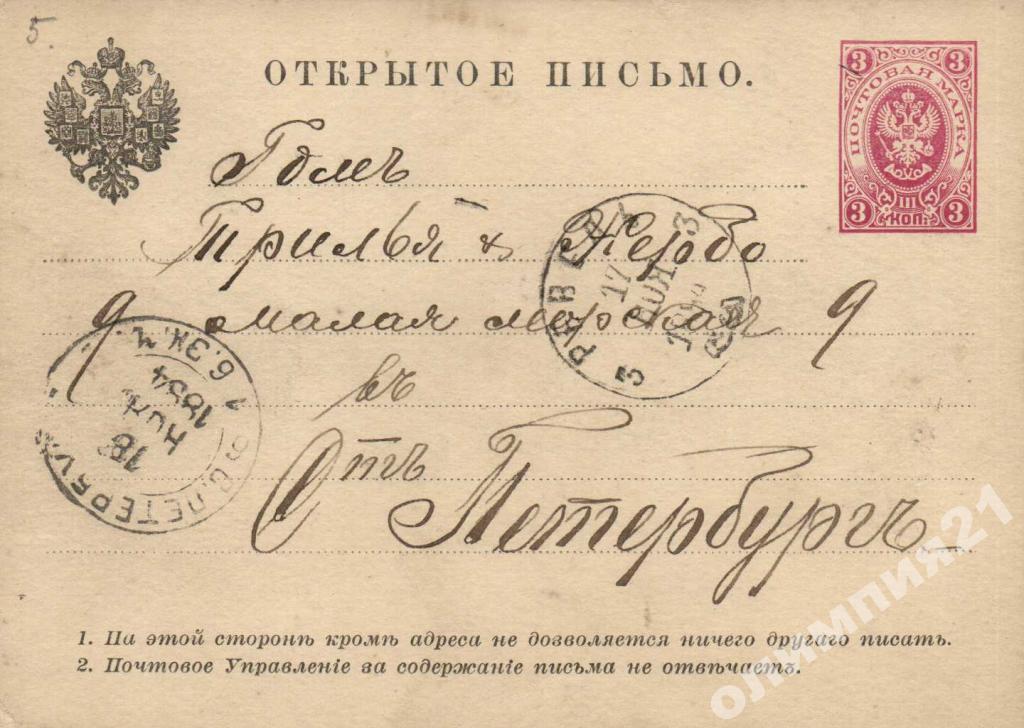 5.
ОТКРЫТОЕ ПИСЬМО.
3 3
ПОЧТОВАЯ МАРКА
III
3 КОП. 3
Гдмъ
Трилья & Жербо
9 малая морская 9
въ
Стъ
Петербургъ
РЕВЕЛЬ
17
НОЯ
3
С.ПЕТЕРБУРГ
18
НОЯ
1884
1. На этой сторонѣ кромѣ адреса не дозволяется ничего другаго писать.
2. Почтовое Управленіе за содержаніе письма не отвѣчаетъ.
олимпия21